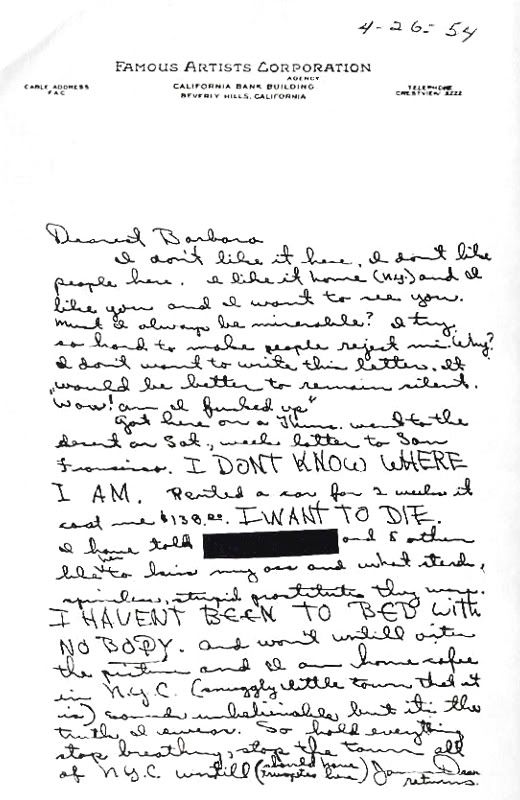 4-26-54
FAMOUS ARTISTS CORPORATION
AGENCY
CABLE ADDRESS
FAC
CALIFORNIA BANK BUILDING
BEVERLY HILLS, CALIFORNIA
TELEPHONE
CRESTVIEW
Dearest Barbara
I don't like it here. I don't like
people here. I like it home (N.Y.) and I
like you and I want to see you.
Must I always be miserable? I try
so hard to make people reject me. Why?
I don't want to write this letter. It
would be better to remain silent.
"Wow! am I fucked up"
Got here on a Thurs. went to the
desert on Sat, week latter to San
Francisco. I DONT KNOW WHERE
I AM. Rented a car for 2 weeks it
cost me $138.00. I WANT TO DIE.
I have told and 5 others
like her to kiss my ass and what
spineless, stupid prostitutes they were.
I HAVENT BEEN TO BED WITH
NO BODY. and won't untill after
the picture and I am home safe
in N.Y.C. (snuggly little town that it
is) sounds unbelievable but it's the
truth I swear. So hold everything
stop breathing, stop the town all
of N.Y.C. untill (should have trumpets here) James Dean
returns.